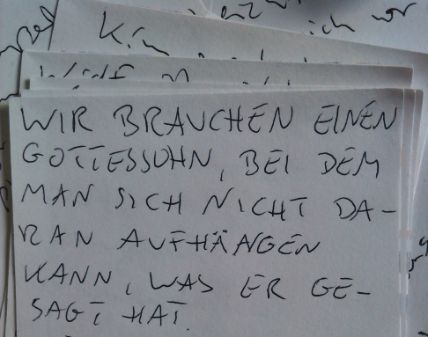 WIR BRAUCHEN EINEN
GOTTESSOHN, BEI DEM
MAN SICH NICHT DA-
RAN AUFHÄNGEN
KANN, WAS ER GE-
SAGT HAT.